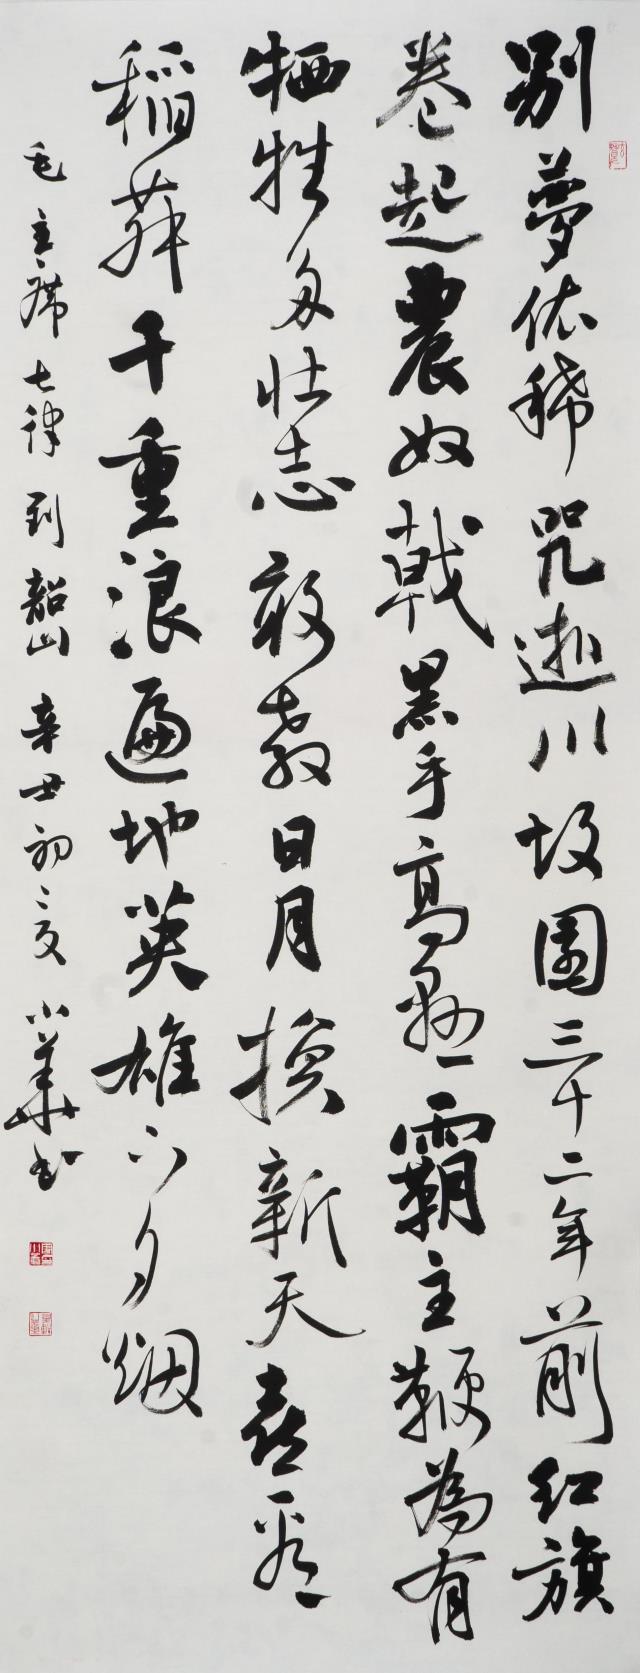 别夢依稀咒逝川故園三十二年前红旗
卷起農奴戟黑手高悬霸主鞭為有
牺牲多壮志敢教日月换新天喜看
稻菽千重浪遍地英雄下夕烟
毛主席七律到韶山 辛丑初夏 小華书